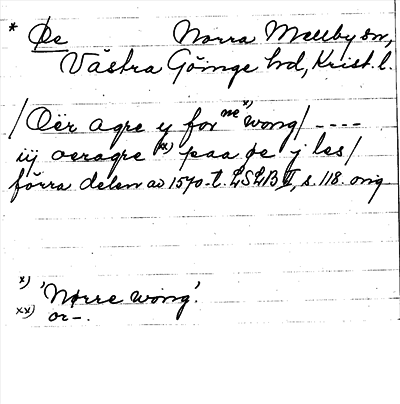 * Øe Norra Mellby sn,
Västra Göinge hd, Krist. l.
/Oër agre y for ne x) wong/ ----
iij oeragre xx) paa øe j les/
förra delen av 1570-t. LSLB II, s. 118. orig
x) 'Nørre wong'.
xx) or-.